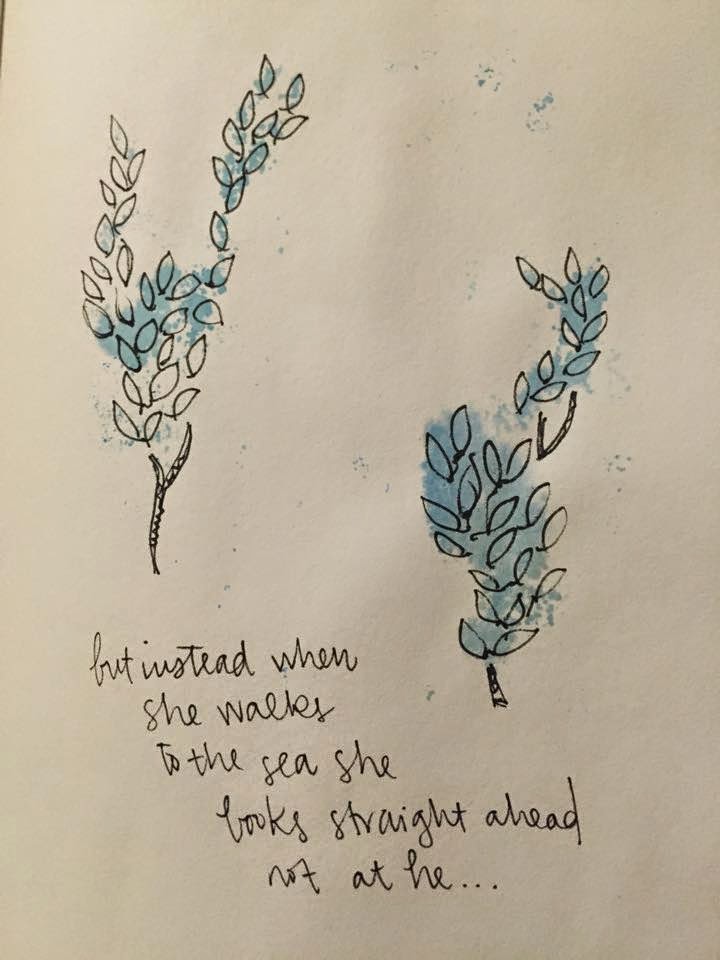 but instead when
she walks
to the sea she
looks straight ahead
not at he...